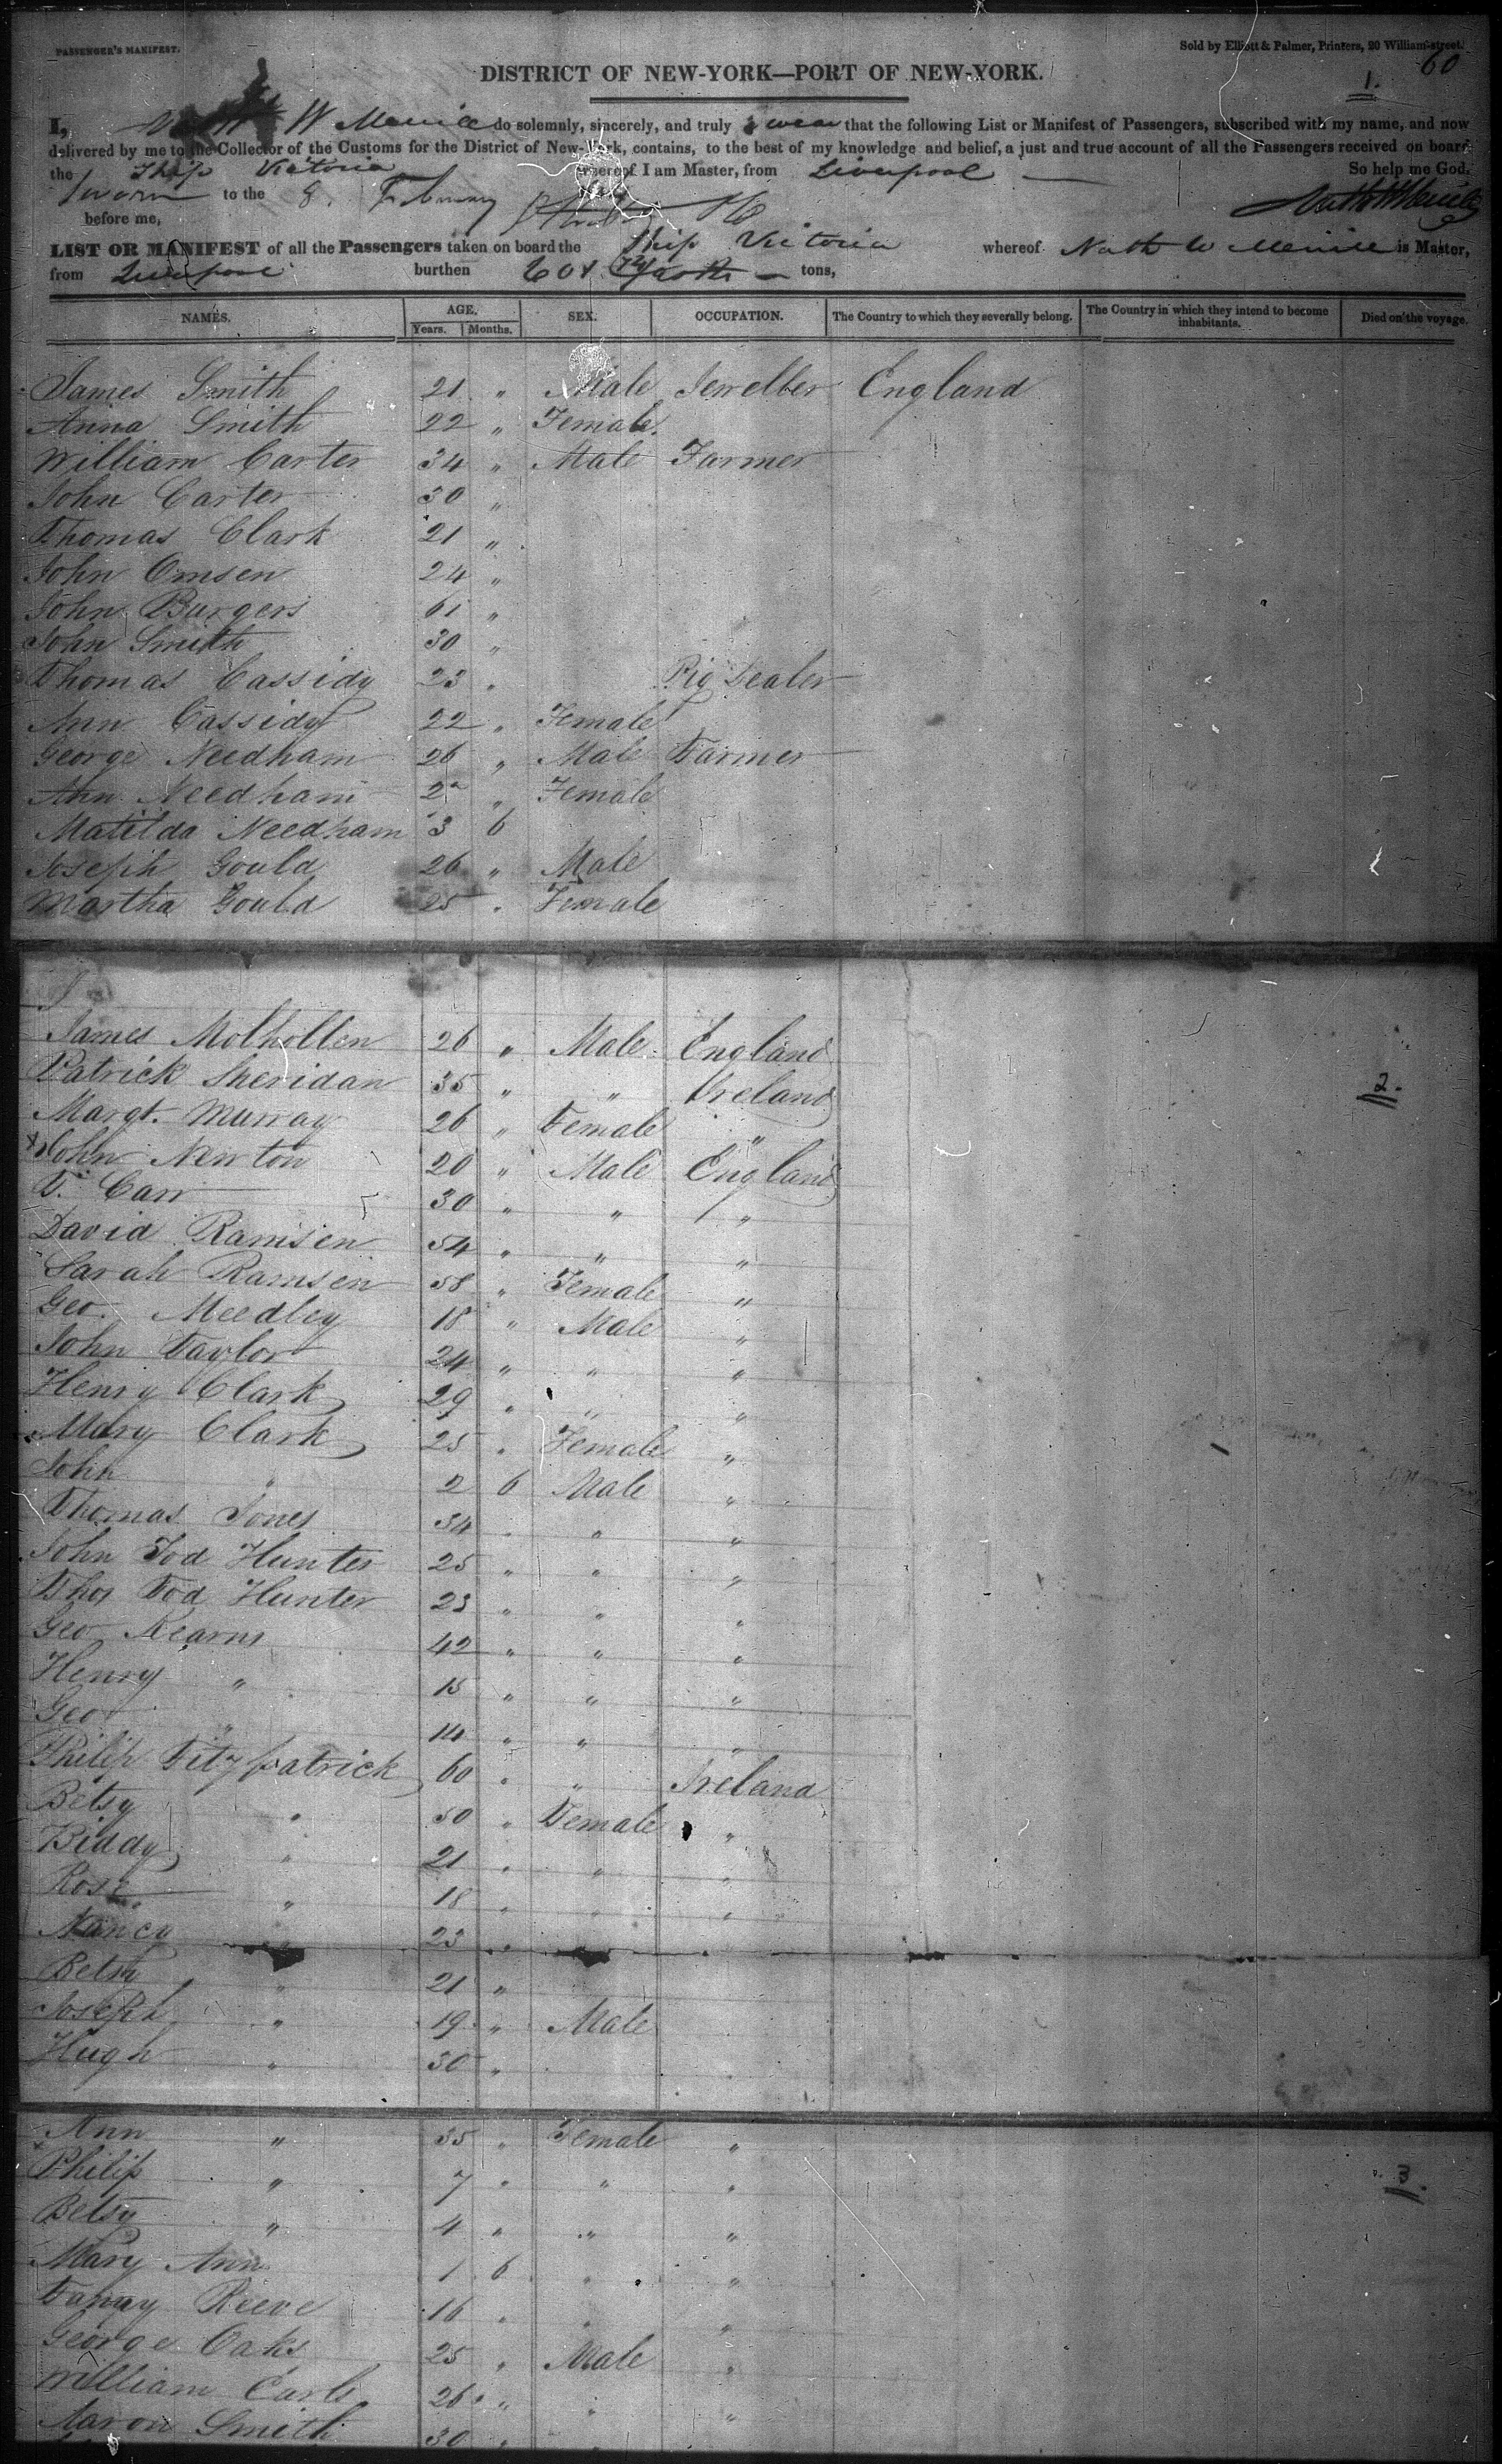 PASSENGER'S MANIFEST.
Sold by Elliott & Palmer, Printers, 20 William-street.
60
1.
DISTRICT OF NEW-YORK—PORT OF NEW-YORK.
I, W Merrill do solemnly, sincerely, and truly swear that the following List or Manifest of Passengers, subscribed with my name, and now
delivered by me to the Collector of the Customs for the District of New-York, contains, to the best of my knowledge and belief, a just and true account of all the Passengers received on board
the Ship Victoria whereof I am Master, from Liverpool So help me God.
Sworn to the 8. February
before me,
LIST OR MANIFEST of all the Passengers taken on board the Ship Victoria whereof Nath W Merrill is Master,
from Liverpool burthen tons,
NAMES. AGE. SEX. OCCUPATION. The Country to which they severally belong. The Country in which they intend to become inhabitants. Died on the voyage.
Years. Months.
James Smith 21 " Male Jeweller England
Anna Smith 22 " Female
William Carter 34 " Male Farmer
John Carter 30 "
Thomas Clark 21 "
John Omsen 24 "
John Burgers 61 "
John Smith 30 "
Thomas Cassidy 23 " Pig Dealer
Ann Cassidy 22 " Female
George Needham 26 " Male Farmer
Ann Needham " Female
Matilda Needham 3 6
Joseph Gould 26 " Male
Martha Gould 25 " Female
James Molhollen 26 " Male England
2.
Patrick Sheridan 35 " " Ireland
Margt. Murray 26 " Female "
John Newton 20 " Male England
T. Carr 30 " " "
David Ramsen 54 " " "
Sarah Ramsen 58 " Female "
Geo. Meedley 18 " Male "
John Taylor 24 " " "
Henry Clark 29 " " "
Mary Clark 25 " Female "
John " 2 6 Male "
Thomas Jones 34 " " "
John Tod Hunter 25 " " "
Thos Tod Hunter 23 " " "
Geo Kearns 42 " " "
Henry " 15 " " "
Geo " 14 " " "
Philip Fitzpatrick 60 " " Ireland
Betsy " 50 " Female "
Biddy " 21 " " "
Rose " 18 " " "
Nancy " 23 "
Betsy " 21 "
Joseph " 19 " Male
Hugh " 30 "
Ann " 35 " Female "
Philip " 7 " " "
3.
Betsy " 4 " " "
Mary Ann 1 6 " "
Fanny Reeve 16 " " "
George Oaks 25 " Male "
William Earls 26 " " "
Aaron Smith 30 "